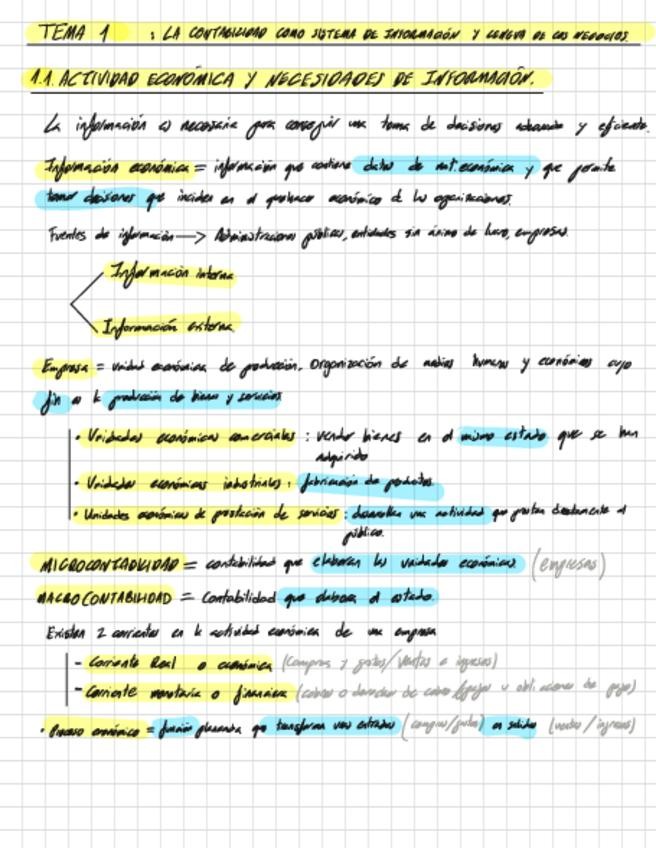 TEMA 1 : LA CONTABILIDAD COMO SISTEMA DE INFORMACIÓN Y LENGUA DE LOS NEGOCIOS.
1.1. ACTIVIDAD ECONÓMICA Y NECESIDADES DE INFORMACIÓN.
La información es necesaria para conseguir una toma de decisiones adecuada y eficiente.
Información económica = información que contiene datos de nat. económica y que permite
tomar decisiones que inciden en el quehacer económico d las organizaciones.
Fuentes de información → Administraciones públicas, entidades sin ánimo de lucro, empresas.
Información interna
Información externa
Empresa = unidad económica de producción. Organización de medios humanos y económicos cuyo
fin es la producción de bienes y servicios
• Unidades económicas comerciales : vender bienes en el mismo estado que se han
adquirido
• Unidades económicas industriales : fabricación de productos.
• Unidades económicas de prestación de servicios : desarrollan una actividad que prestan directamente al
público.
MICROCONTABILIDAD = contabilidad que elaboran las unidades económicas. (empresas)
MACROCONTABILIDAD = Contabilidad que elabora el estado
Existen 2 corrientes en la actividad económica de una empresa
- Corriente Real o económica (compras y gastos/ventas e ingresos)
- Corriente monetaria o financiera (cobros o derechos de cobro/pagos u obligaciones de pagos)
• Proceso económico = función que transforma unas entradas (compras/gastos) en salidas (ventas/ingresos)